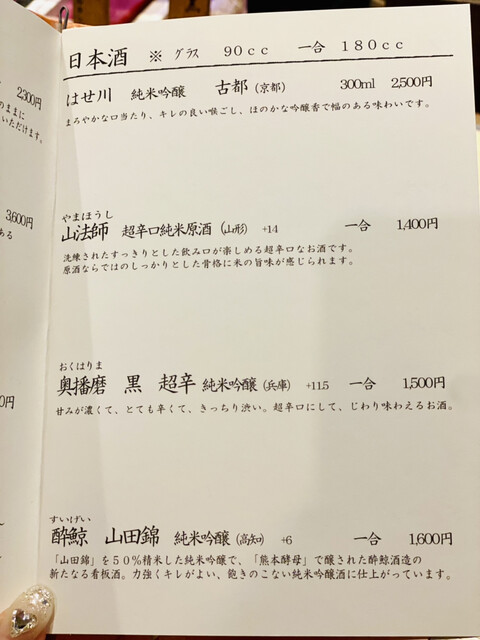 2300円
のままに
いただけます。
3,600円
ある
0円
日本酒 ※ グラス 90cc 一合 180cc
はせ川 純米吟醸 古都 (京都) 300ml 2,500円
まろやかな口当たり、キレの良い喉ごし、ほのかな吟醸香で幅のある味わいです。
やまほうし
山法師 超辛口純米原酒 (山形) +14 一合 1,400円
洗練されたすっきりとした飲み口が楽しめる超辛口なお酒です。
原酒ならではのしっかりとした骨格に米の旨味が感じられます。
おくはりま
奥播磨 黒 超辛 純米吟醸 (兵庫) +11.5 一合 1,500円
甘みが濃くて、とても辛くて、きっちり渋い。超辛口にして、じわり味わえるお酒。
すいげい
酔鯨 山田錦 純米吟醸 (高知) +6 一合 1,600円
「山田錦」を50%精米した純米吟醸で、「熊本酵母」で醸された酔鯨酒造の
新たなる看板酒。力強くキレがよい、飽きのこない純米吟醸酒に仕上がっています。